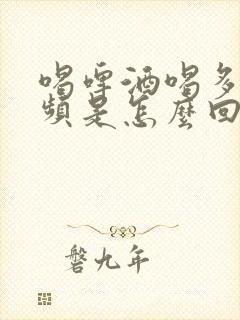 喝啤酒喝多
頻是怎麼回
磐九年